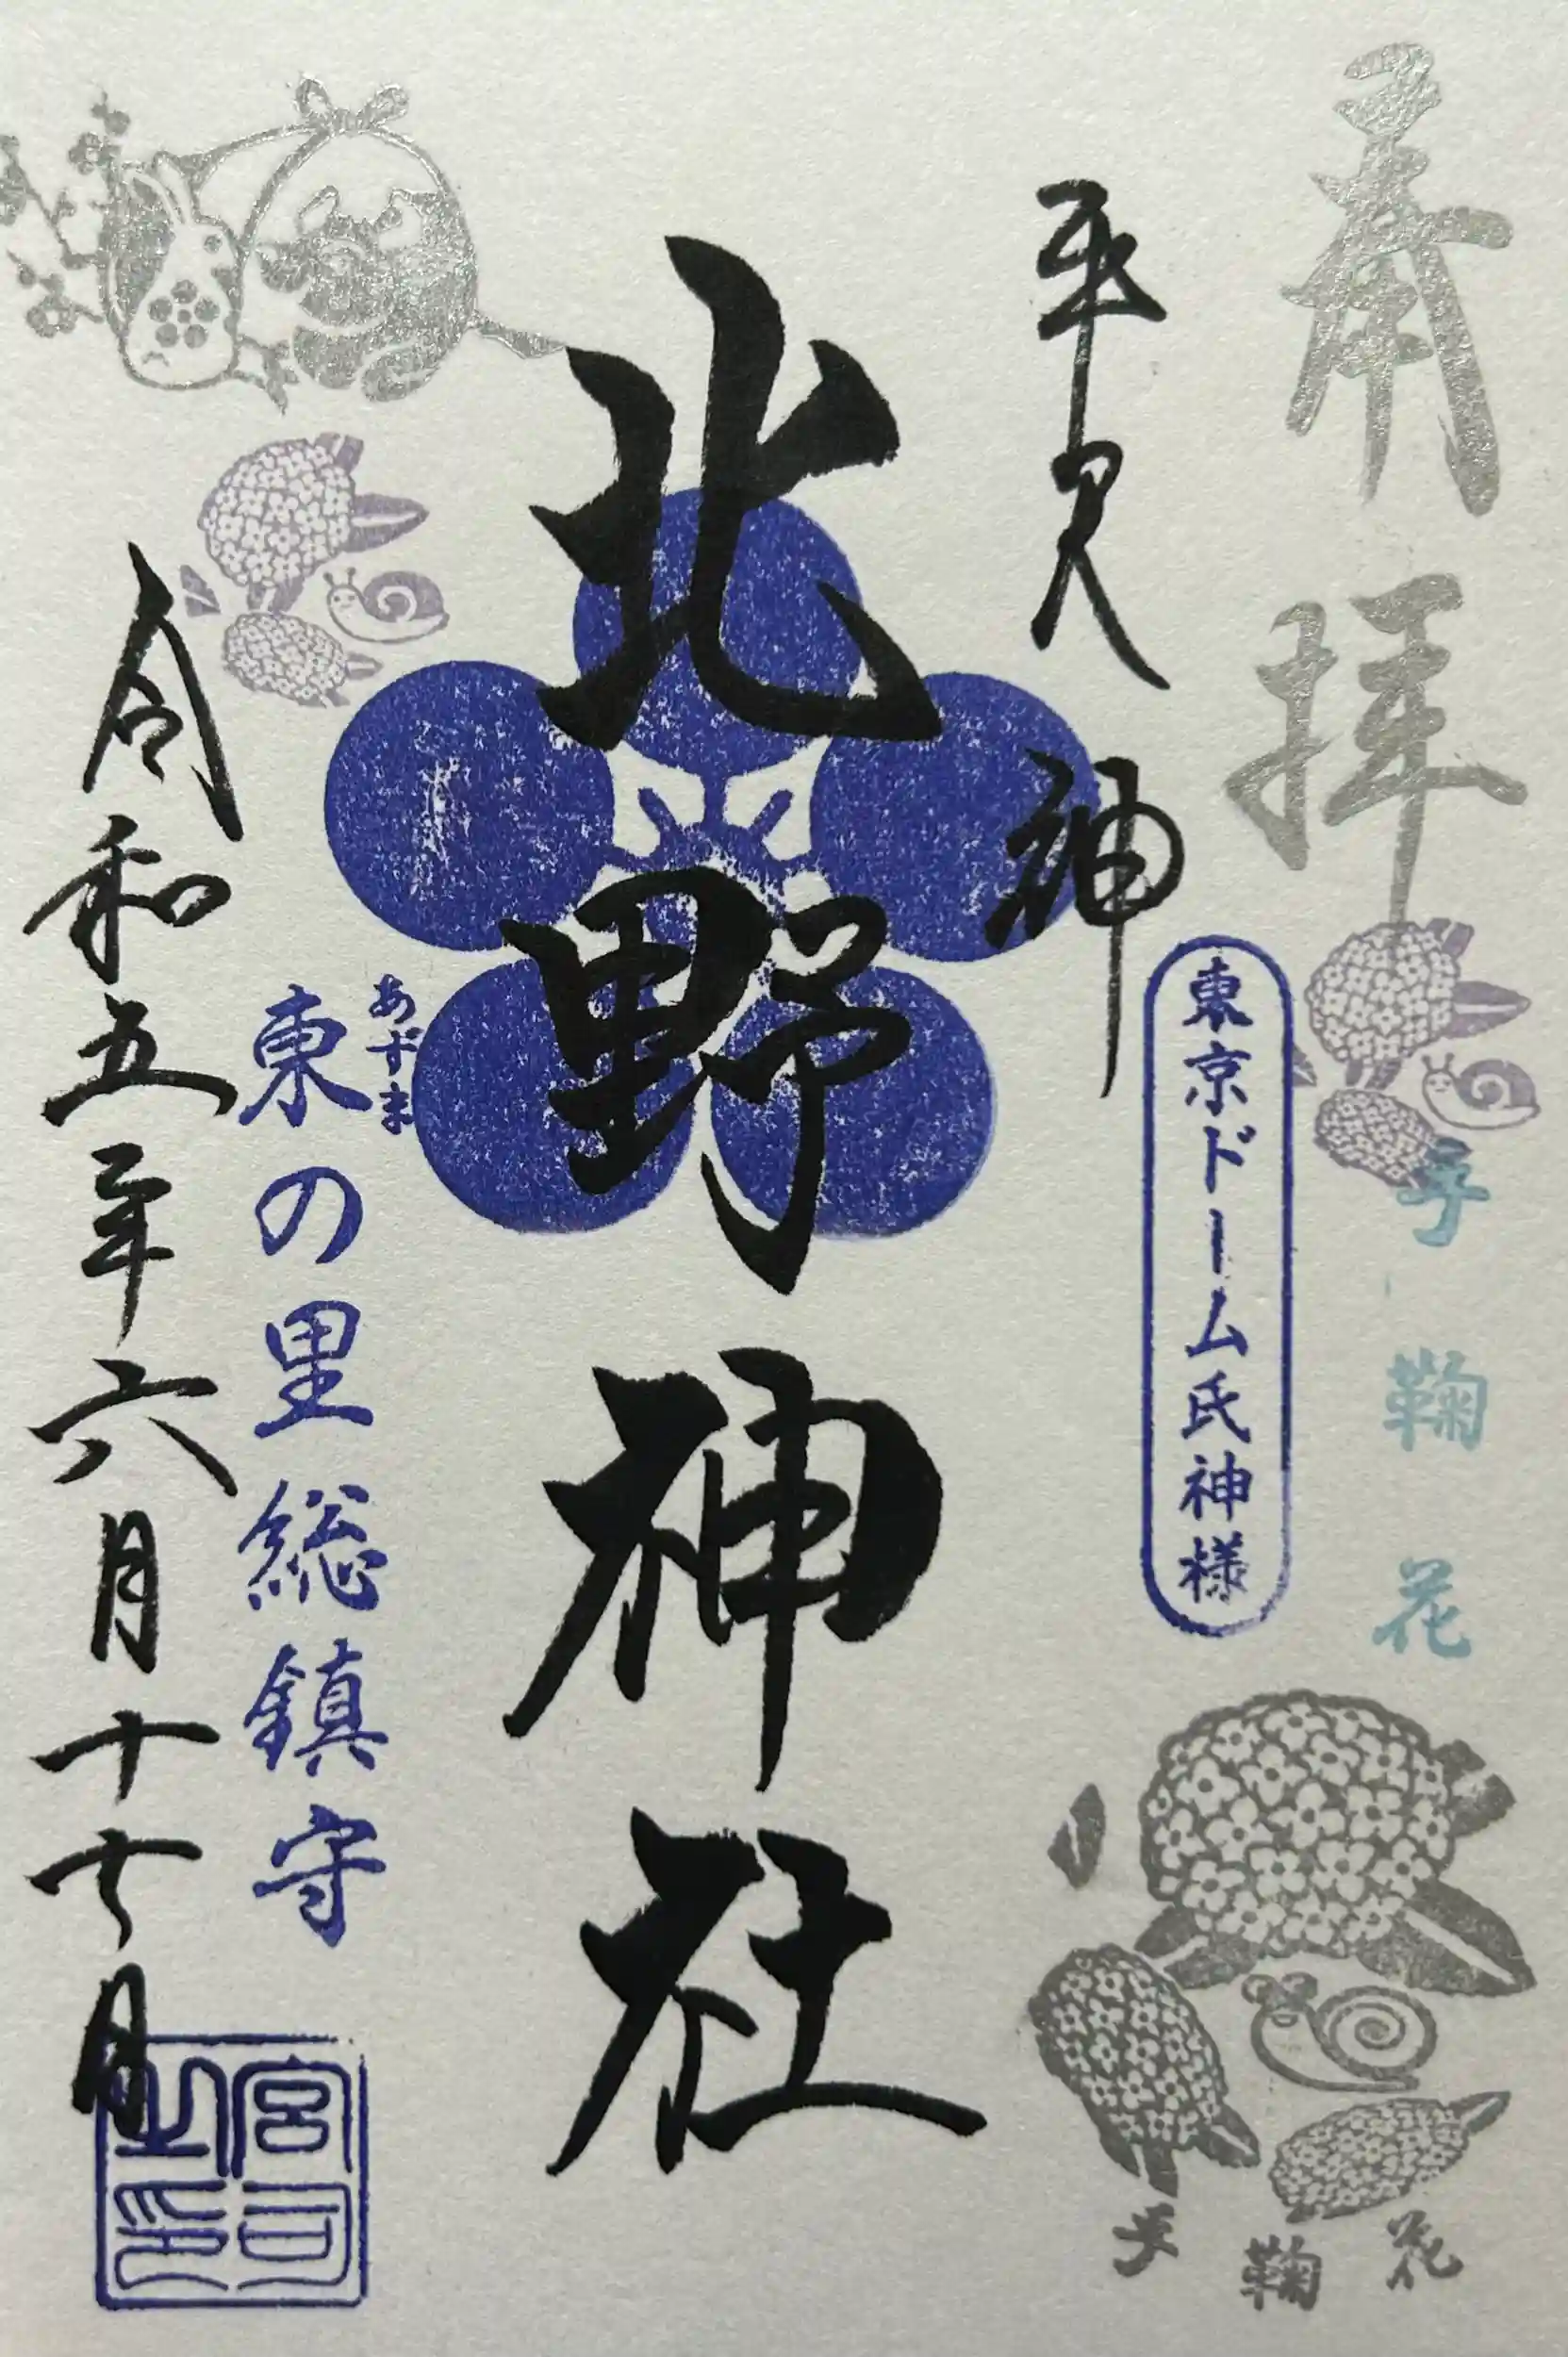 奉拝
手鞠花
手鞠花
東京ドーム氏神様
牛天神
北野神社
あずま
東の里総鎮守
令和五年六月十七日
宮司之印